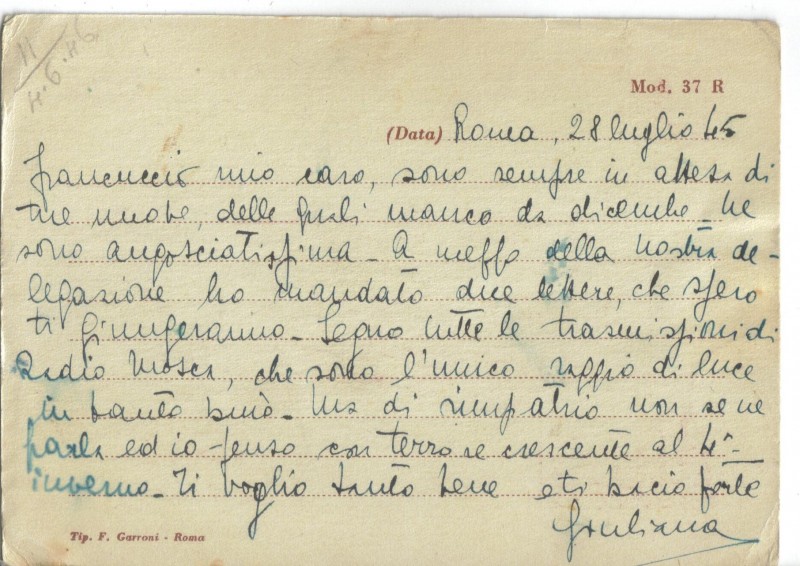 11
4.6.46
Mod. 37 R
(Data) Roma, 28 luglio 45
Francuccio mio caro, sono sempre in attesa di
tue nuove, delle quali manco da dicembre. Ne
sono angosciatissima - A mezzo della nostra de-
legazione ho mandato due lettere, che spero
ti giungeranno - Seguo tutte le trasmissioni di
Radio Mosca, che sono l'unico raggio di luce
in tanto buio - Ma di rimpatrio non se ne
parla ed io penso con terrore crescente al 4°
inverno - Ti voglio tanto bene e ti bacio forte
Giuliana
Tip. F. Garroni - Roma